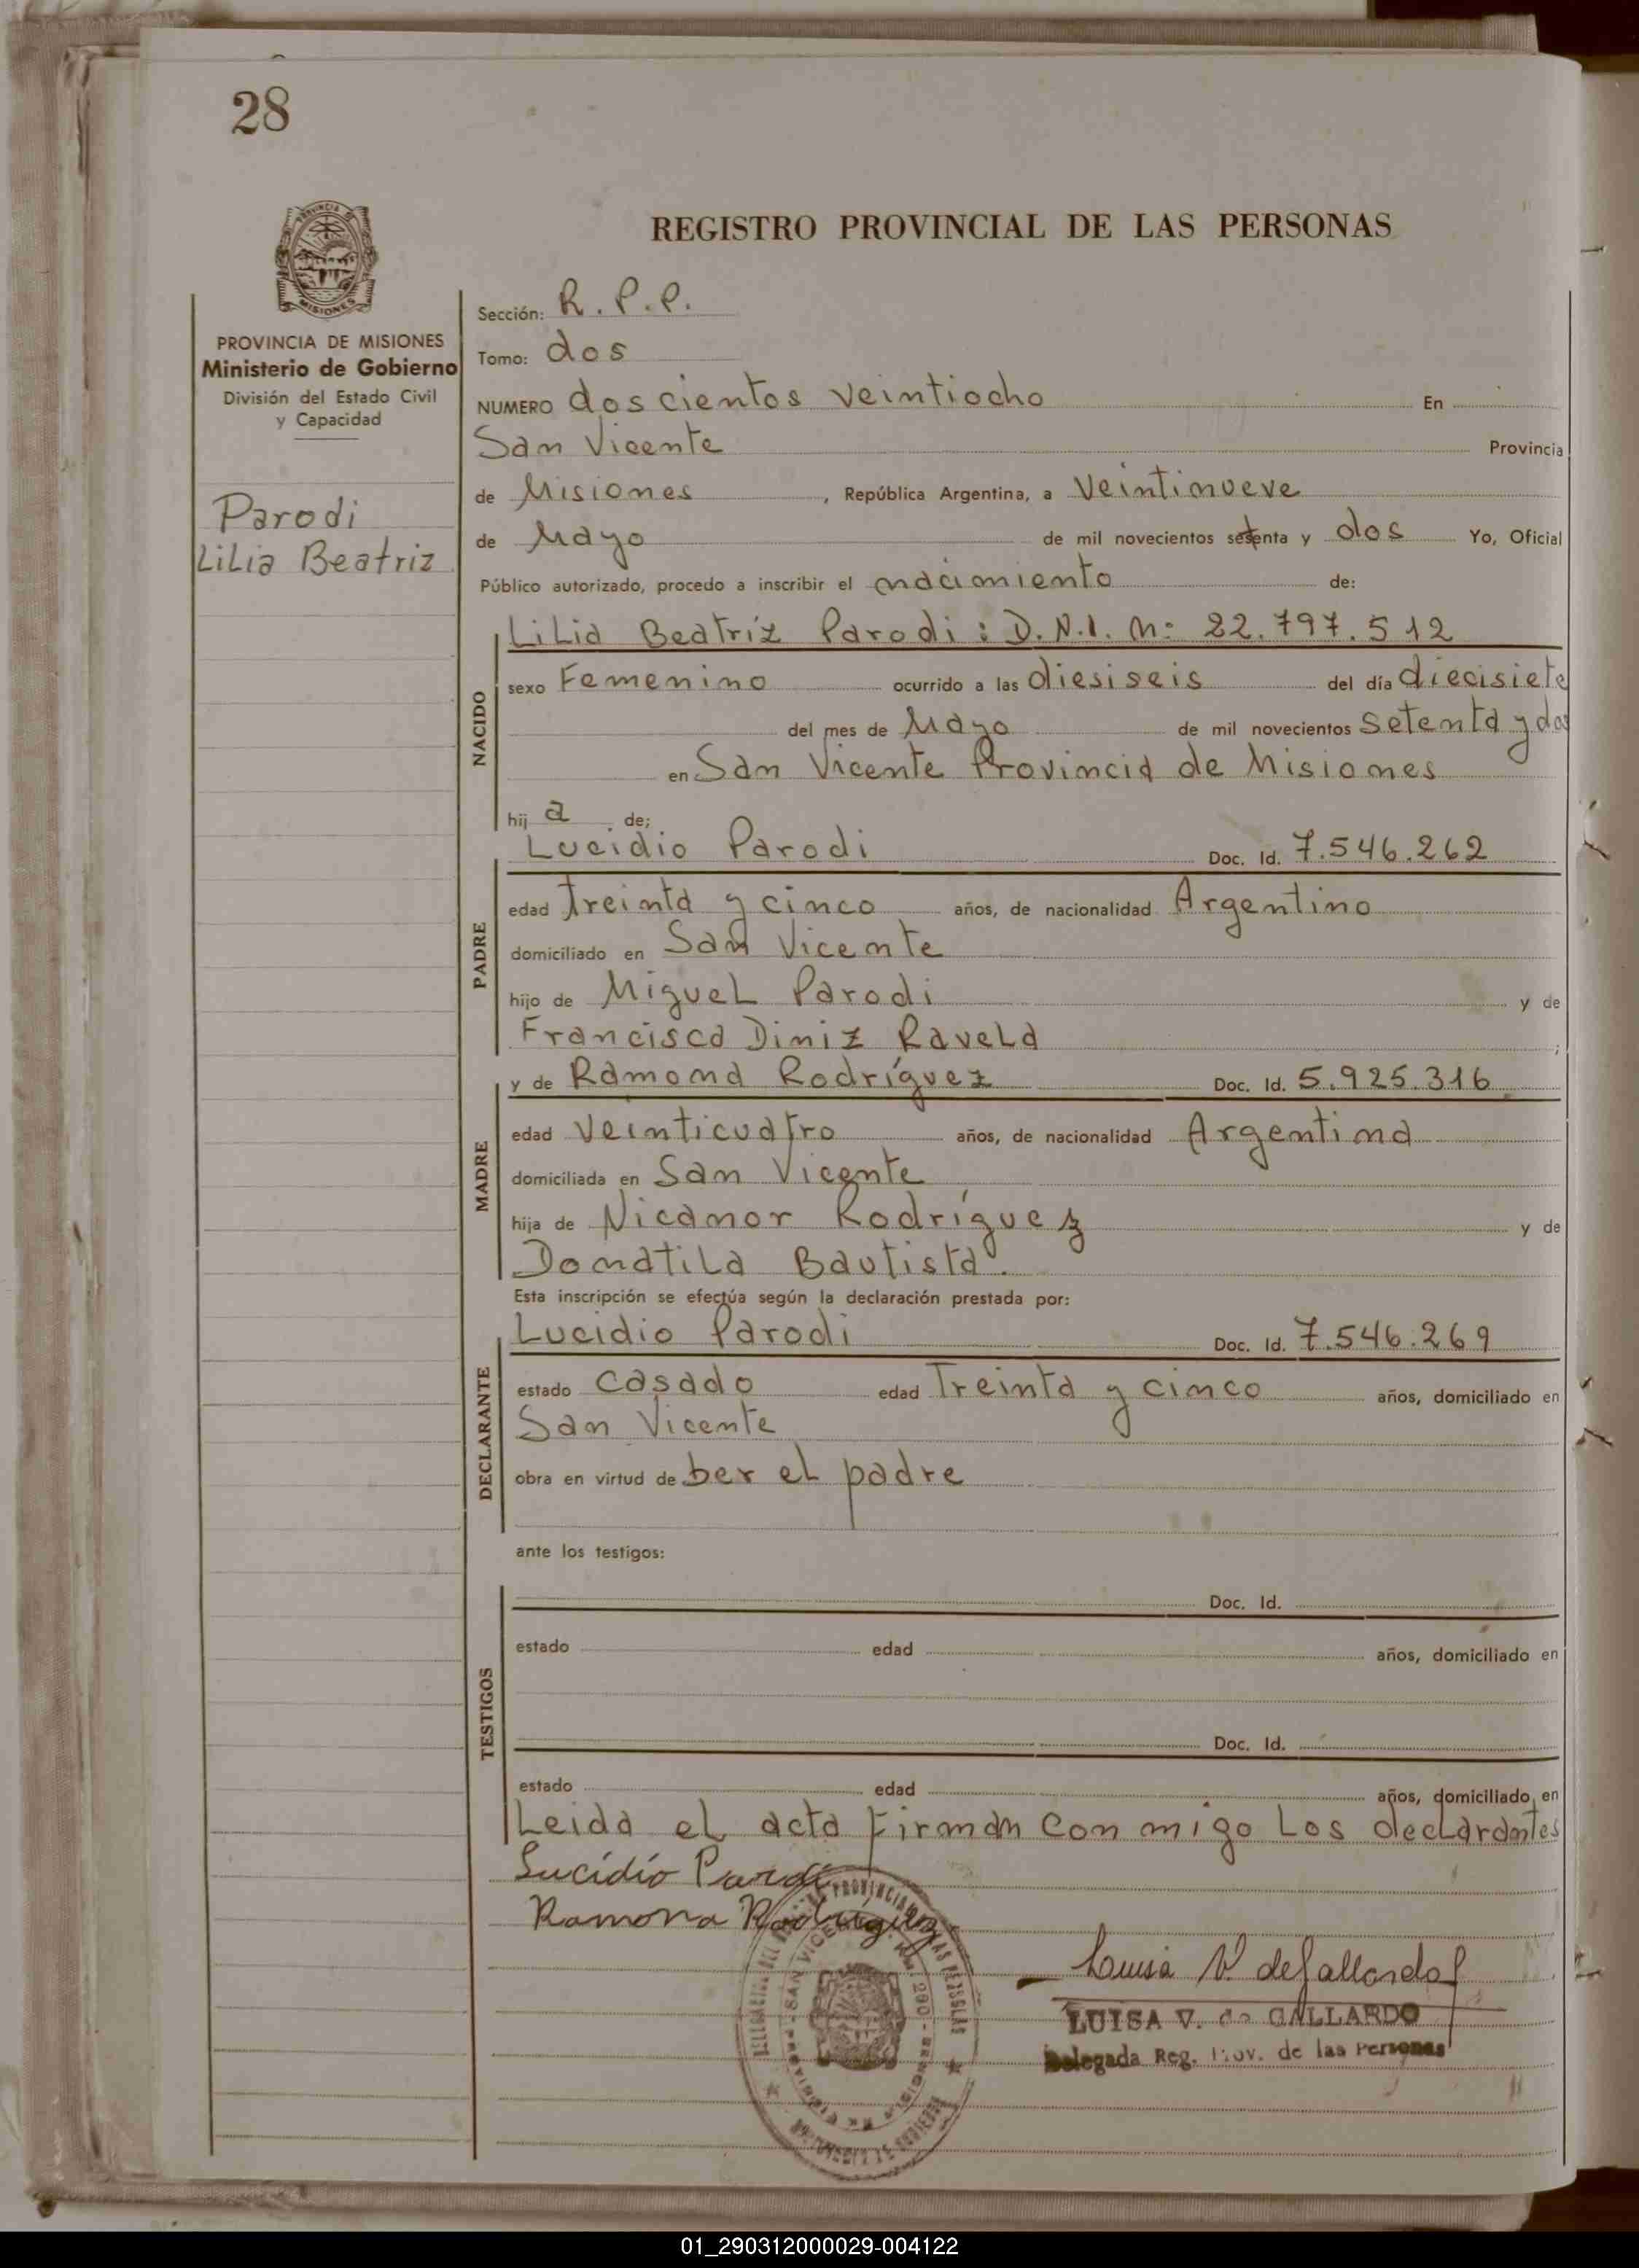 28
REGISTRO PROVINCIAL DE LAS PERSONAS
PROVINCIA DE
MISIONES
PROVINCIA DE MISIONES
Ministerio de Gobierno
División del Estado Civil
y Capacidad
Parodi
Lilia Beatriz
Sección: R. P. P.
Tomo: dos
NUMERO doscientos veintiocho En
San Vicente Provincia
de Misiones, República Argentina, a Veintinueve
de Mayo de mil novecientos setenta y dos Yo, Oficial
Público autorizado, procedo a inscribir el nacimiento de:
NACIDO
Lilia Beatríz Parodi: D.N.I. Nº 22.797.512
sexo Femenino ocurrido a las diesiseis del día diecisiete
del mes de Mayo de mil novecientos setenta y dos
en San Vicente Provincia de Misiones
hij a de;
PADRE
Lucidio Parodi Doc. Id. 7.546.262
edad treinta y cinco años, de nacionalidad Argentino
domiciliado en San Vicente
hijo de Miguel Parodi y de
Francisca Diniz Ravela ;
MADRE
y de Ramona Rodríguez Doc. Id. 5.925.316
edad Veinticuatro años, de nacionalidad Argentina
domiciliada en San Vicente
hija de Nicanor Rodríguez y de
Domatila Bautista.
Esta inscripción se efectúa según la declaración prestada por:
DECLARANTE
Lucidio Parodi Doc. Id. 7.546.269
estado casado edad Treinta y cinco años, domiciliado en
San Vicente
obra en virtud de ber el padre
ante los testigos:
TESTIGOS
Doc. Id.
estado edad años, domiciliado en
Doc. Id.
estado edad años, domiciliado en
Leida el acta Firman con migo Los declarantes
Lucidio Parodi
Ramona Rodriguez
Luisa V. de Gallardo
LUISA V. de GALLARDO
Delegada Reg. Prov. de las Personas
01_290312000029-004122